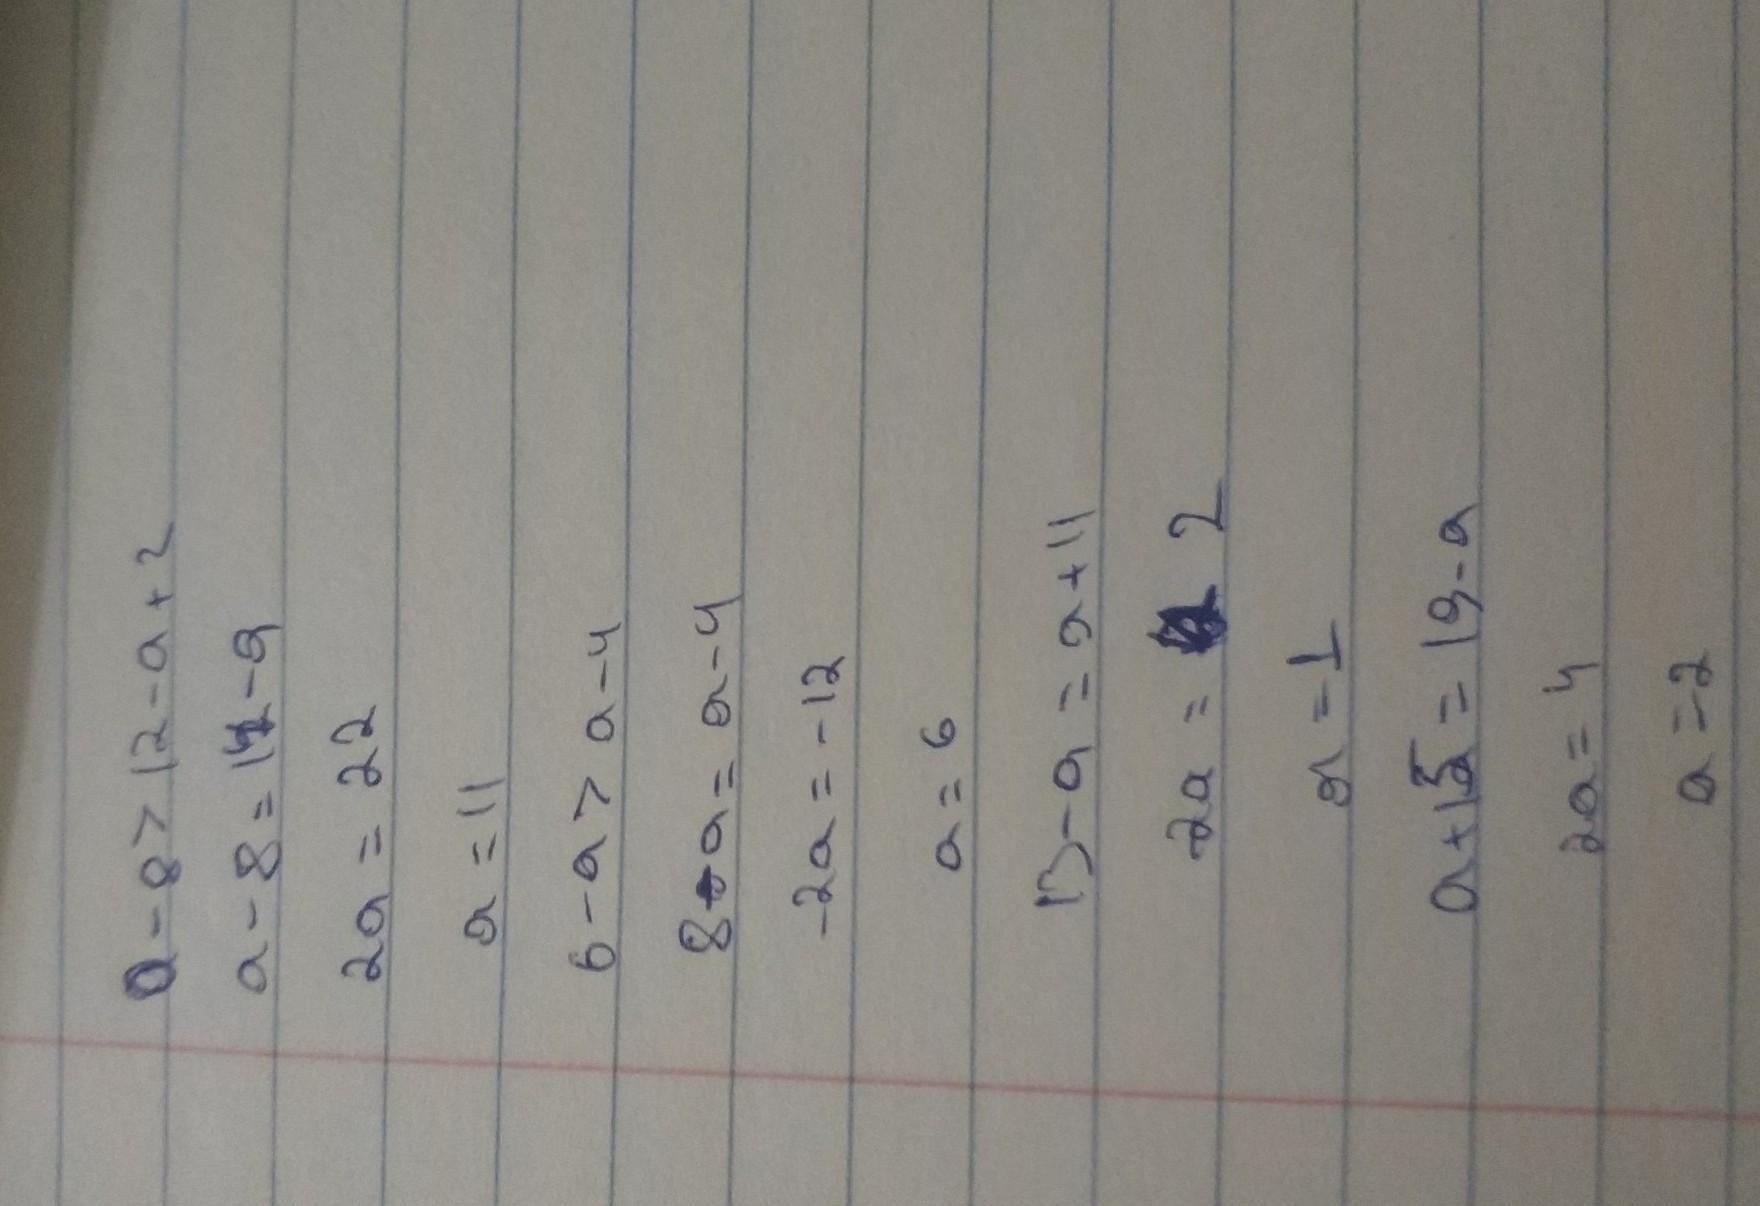 a-8>12-a+2
a-8=14-a
2a=22
a=11
6-a>a-4
8-a=a-4
-2a=-12
a=6
13-a=a+11
2a=2
a=1
a+15=19-a
2a=4
a=2